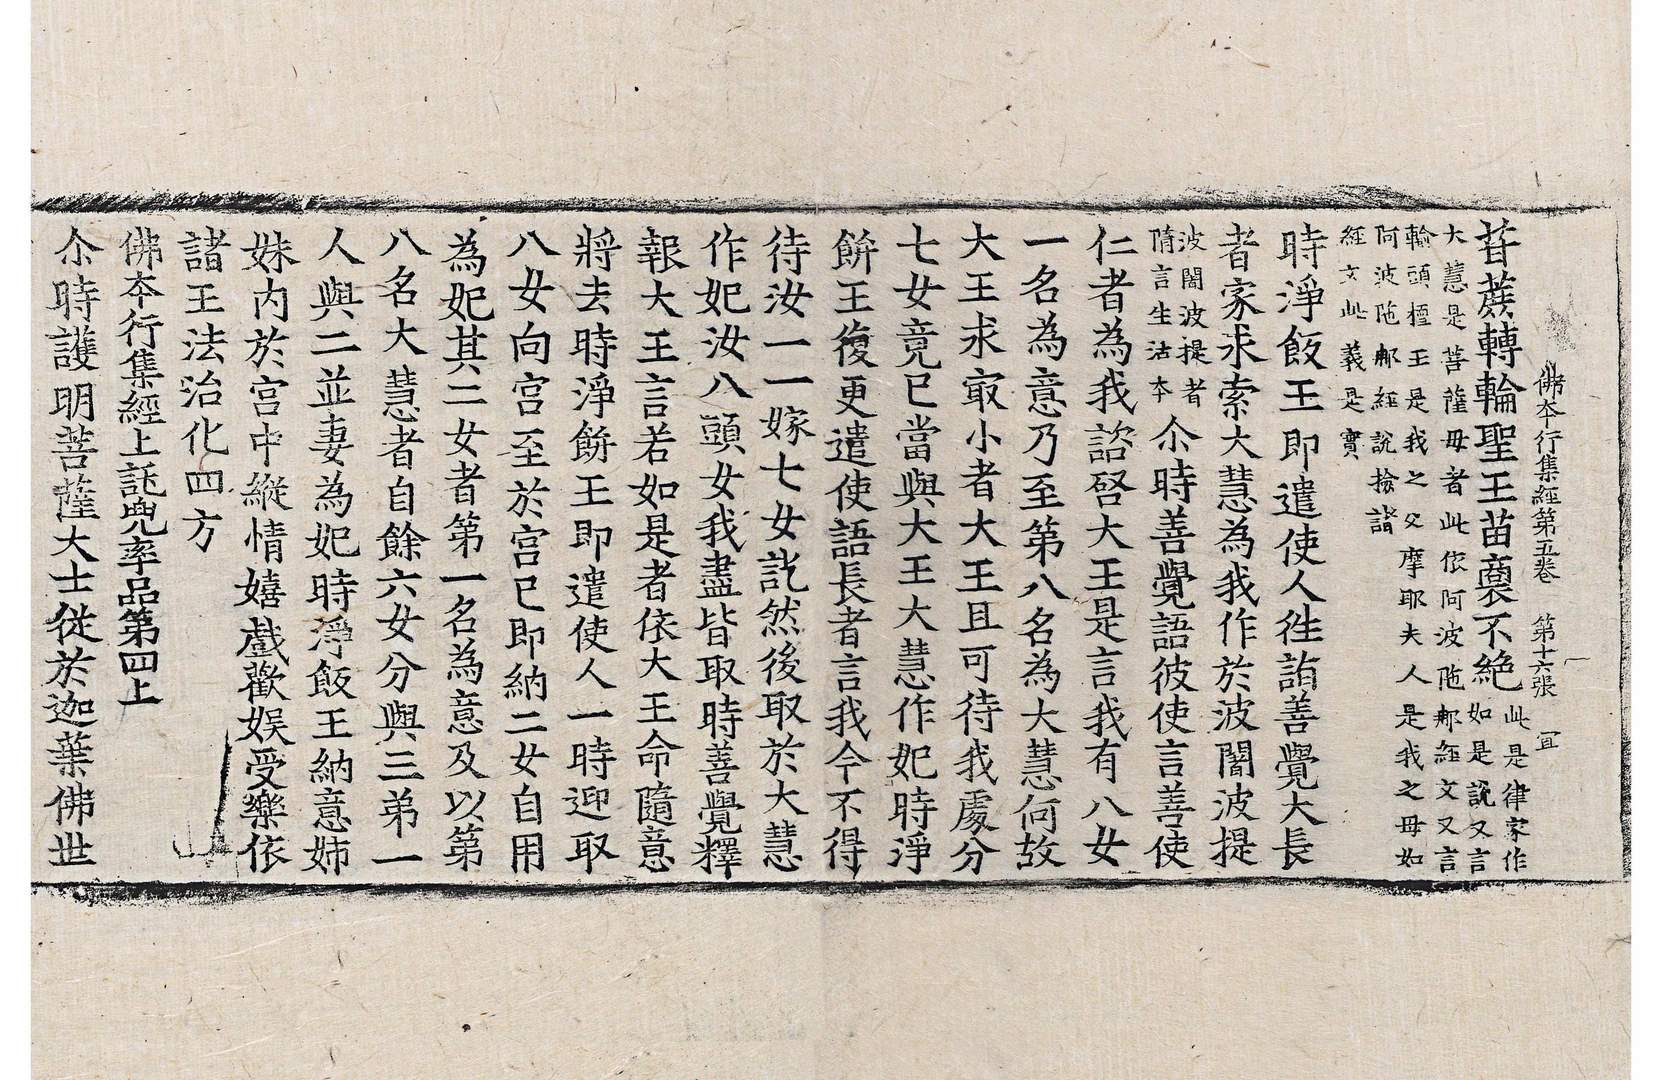 佛本行集經第五卷　第十六張　冝
苷蔗轉輪聖王苗裔不絶此是律家作如是說又言
大慧是菩薩母者此依阿波陁那經文又言
輸頭檀王是我之父摩耶夫人是我之母如
阿波陁那經說撿諸
經文此義是實
時淨飯王即遣使人徃詣善覺大長
者家求索大慧為我作於波闍波提
波闍波提者
隋言生活本尒時善覺語彼使言善使
仁者為我諮啓大王是言我有八女
一名為意乃至第八名為大慧何故
大王求㝡小者大王且可待我處分
七女竟已當與大王大慧作妃時淨
餅王復更遣使語長者言我今不得
待汝一一嫁七女訖然後取於大慧
作妃汝八頭女我盡皆取時善覺釋
報大王言若如是者依大王命隨意
將去時淨餅王即遣使人一時迎取
八女向宮至於宮已即納二女自用
為妃其二女者第一名為意及以第
八名大慧者自餘六女分與三弟一
人與二並妻為妃時淨飯王納意姉
妹内於宮中縱情嬉戲歡娛受樂依
諸王法治化四方
佛本行集經上託兜率品第四上
尒時護明菩薩大士從於迦葉佛世